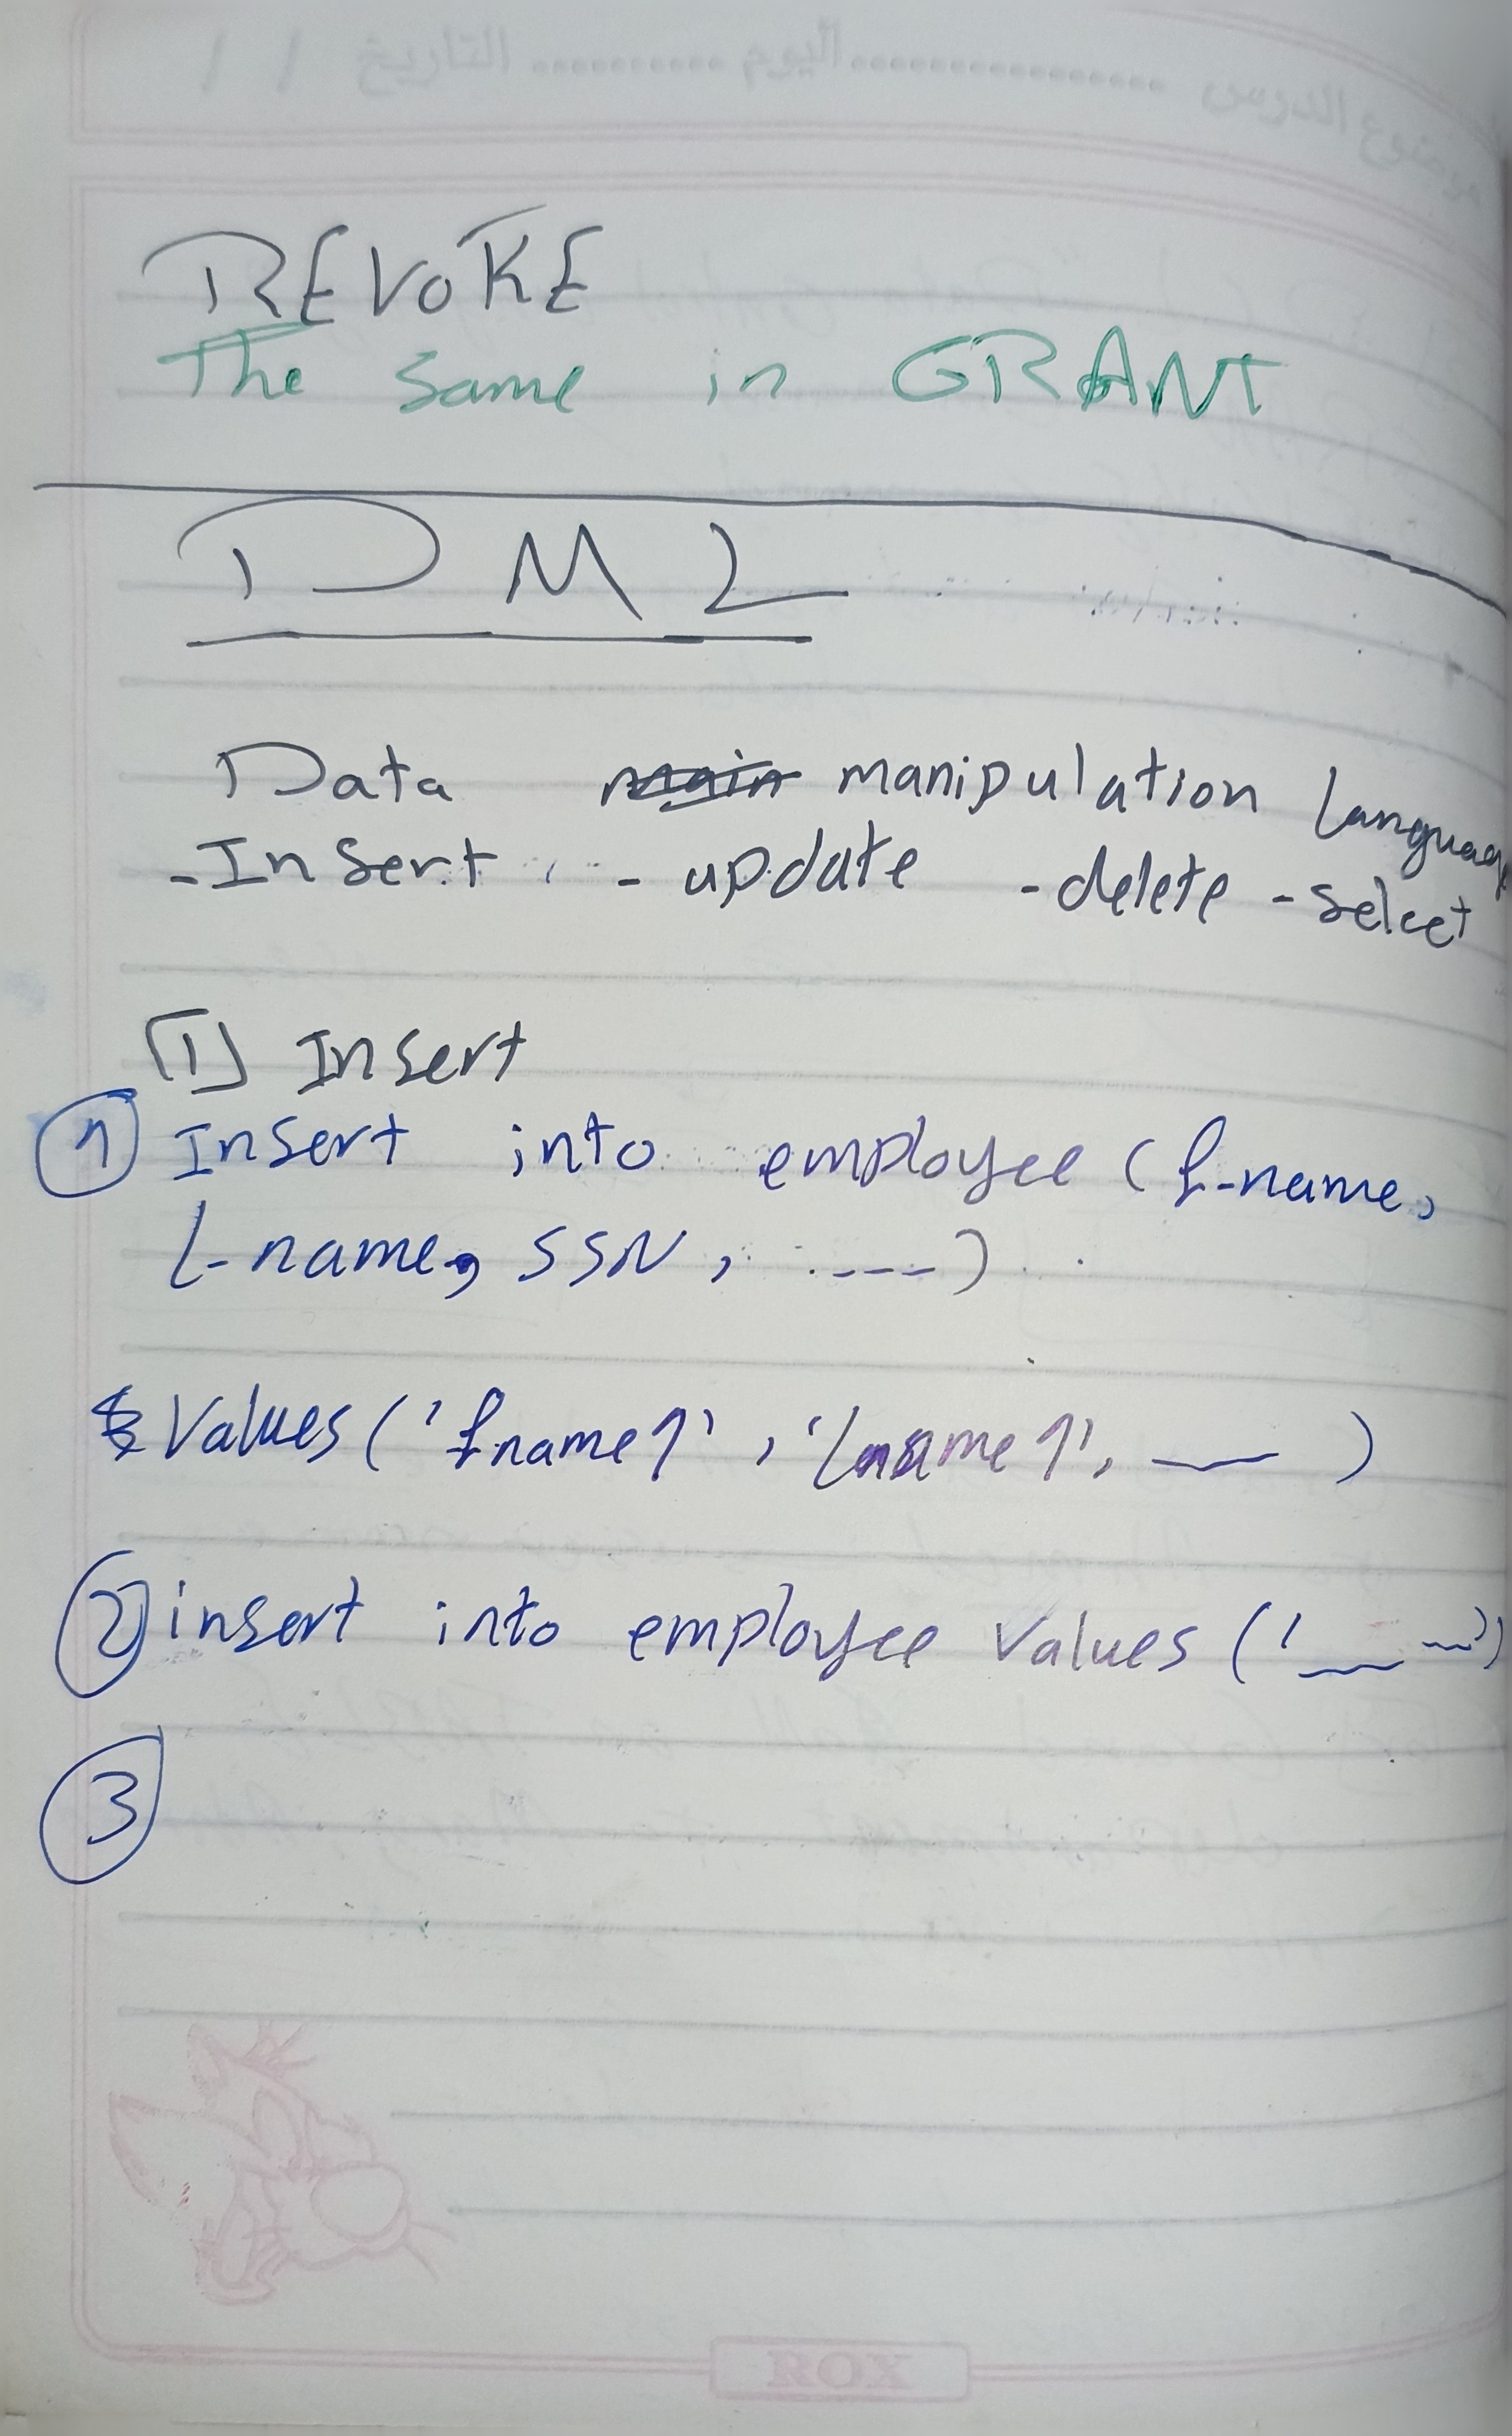 REVOKE
The same in GRANT
DML
Data main manipulation language
-Insert - update -delete -select
[1] Insert
1 Insert into employee (f-name,
L-name, SSN, ----)
Values ('fname1', 'lname1', __ )
2 insert into employee values ('__ ~~')
3